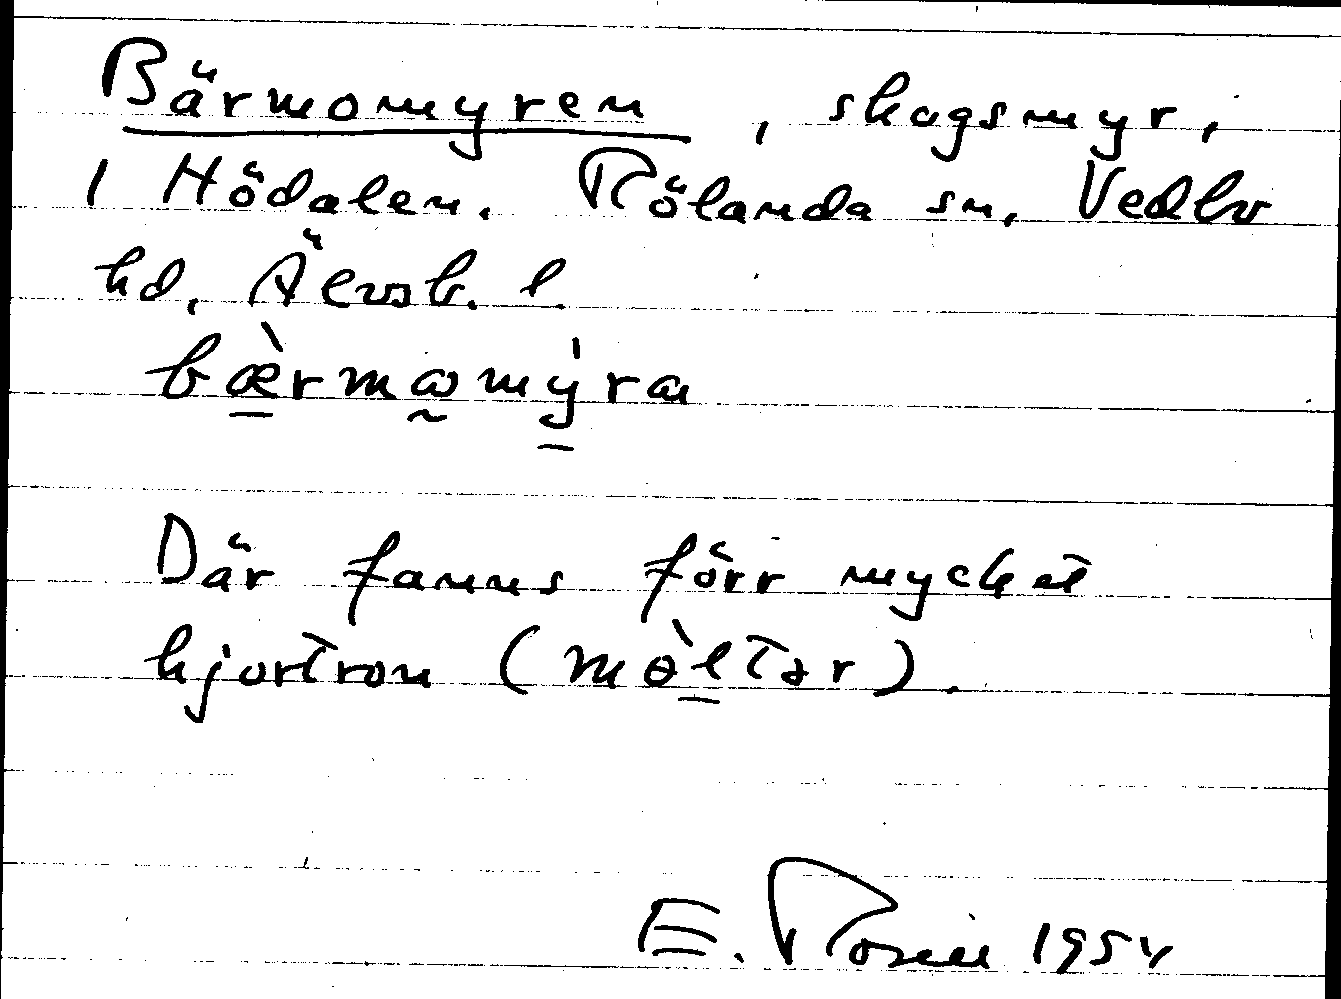 Bärmomyren, skogsmyr,
i Hödalen. Rölanda sn, Vedbo
hd, Älvsb. l.
bæ̀rmɷmýra
Där fanns förr mycket
hjortron (mòltər).
E. Rosell 1954